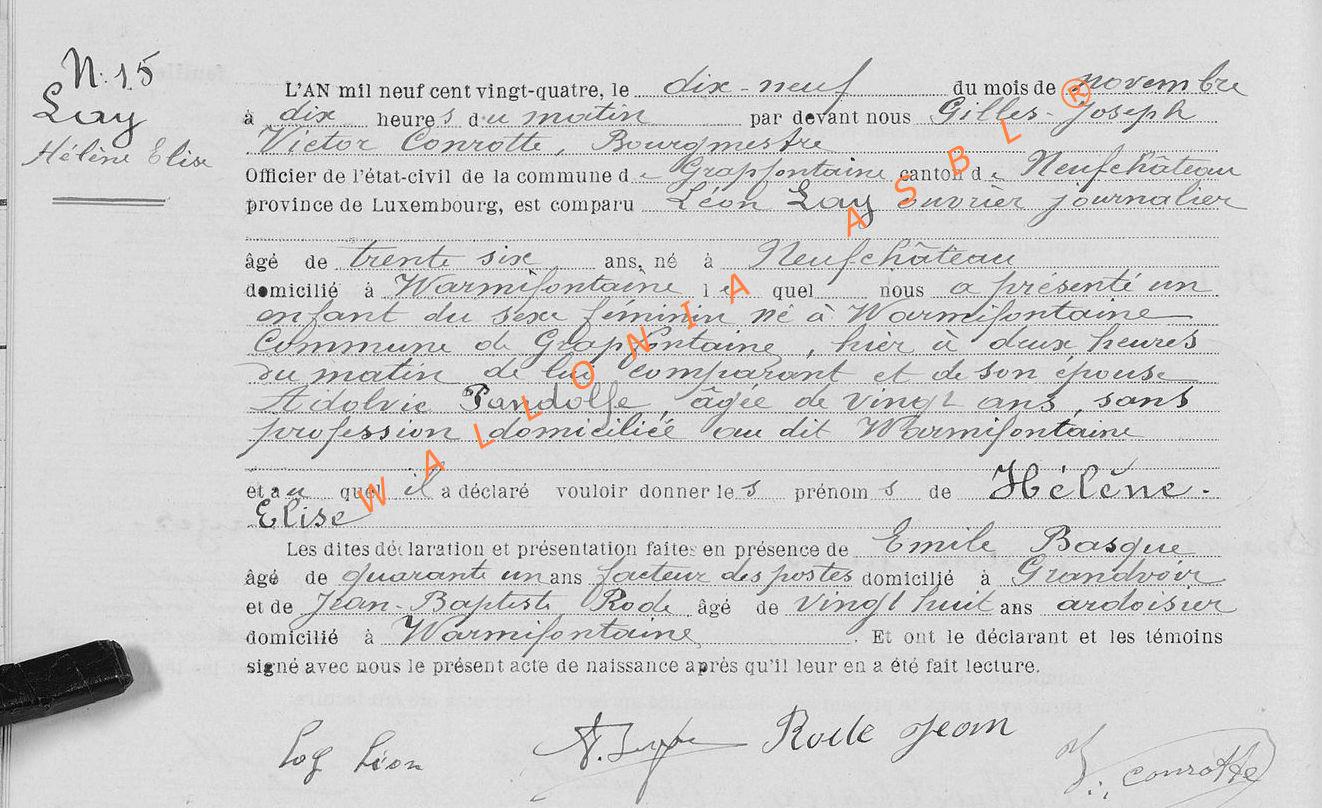 N. 15
Lay
Hélène Elise
L'AN mil neuf cent vingt-quatre, le dix-neuf du mois de novembre
à dix heures du matin par devant nous Gilles-Joseph
Victor Conrotte, Bourgmestre
Officier de l'état-civil de la commune de Grapfontaine canton de Neufchâteau
province de Luxembourg, est comparu Léon Lay ouvrier journalier
âgé de trente six ans, né à Neufchâteau
domicilié à Warmifontaine lequel nous a présenté un
enfant du sexe féminin né à Warmifontaine
Commune de Grapfontaine, hier à deux heures
du matin de lui comparant et de son épouse
Adolvie Pandolfe, âgée de vingt ans, sans
profession domiciliée au dit Warmifontaine
et au quel il a déclaré vouloir donner les prénoms de Hélène-
Elise
Les dites déclaration et présentation faites en présence de Emile Basque
âgé de quarante un ans facteur des postes domicilié à Grandvoir
et de Jean-Baptiste Rode âgé de vingt huit ans ardoisier
domicilié à Warmifontaine. Et ont le déclarant et les témoins
signé avec nous le présent acte de naissance après qu'il leur en a été fait lecture.
Léon Rode Jean
V. Conrotte
WALLONIA ASBL ®